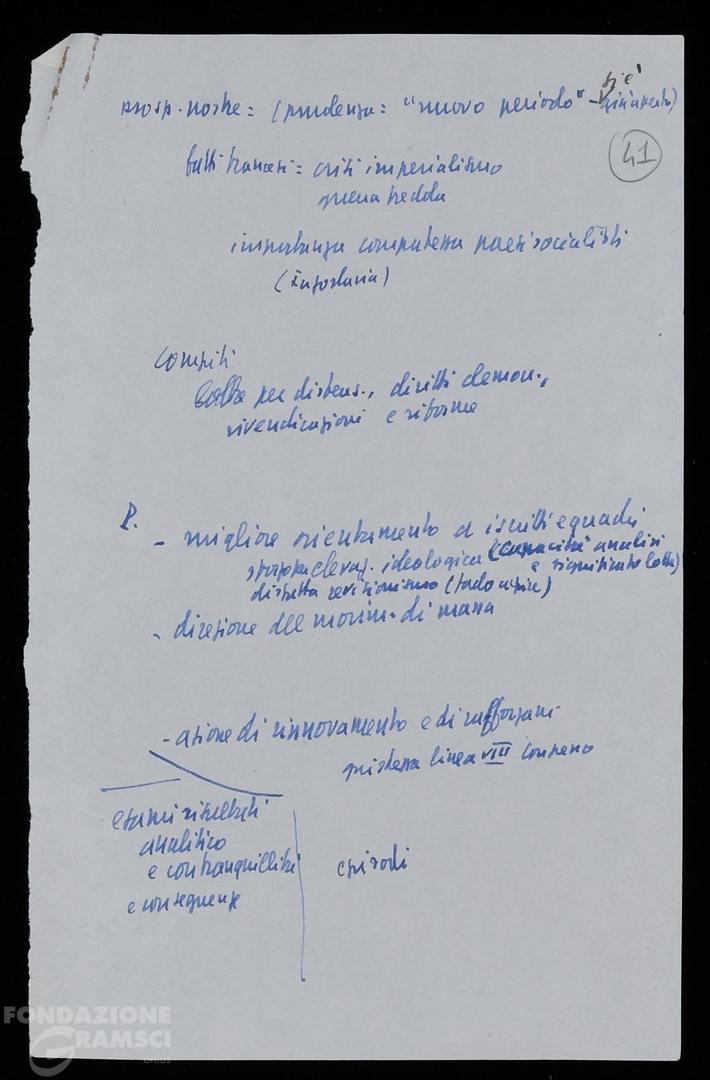 prosp. nostre = (prudenza = "nuovo periodo" - si è
41
fatti francesi = crisi imperialismo
guerra fredda
importanza compattezza paesi socialisti
(Jugoslavia)
Compiti
lotta per distens., diritti democr.,
rivendicazioni e riforme
P.
- migliore orientamento di iscritti e quadri
elevaz. ideologica (capacità analisi
e significato lotta)
difesa revisionismo
- direzione del movim. di massa
- azione di rinnovamento e di rafforzam.
giustezza linea VIII congresso
esami risultati
analitico
e con tranquillità
e conseguenze
episodi
FONDAZIONE
GRAMSCI
onlus